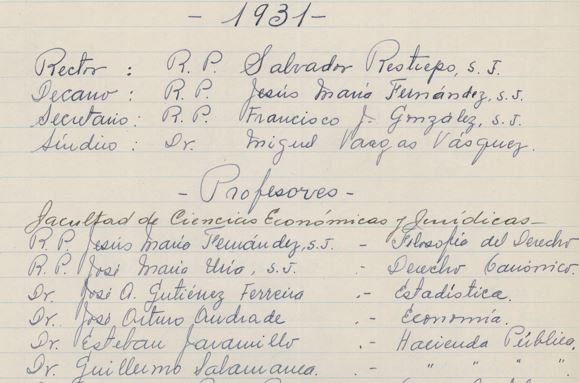 - 1931-
Rector : R. P. Salvador Restrepo, s. J.
Decano : R. P. Jesús María Fernández, s.J.
Secretario : R. P. Francisco J. González, s. J.
Síndico : Dr. Miguel Vargas Vásquez.
- Profesores -
Facultad de Ciencias Económicas y Jurídicas-
R. P. Jesús María Fernández, s.J. - Filosofía del Derecho
R. P. José María Uría, s.J. - Derecho Canónico.
Dr. José A. Gutiérrez Ferreira .- Estadística.
Dr. José Arturo Andrade .- Economía.
Dr. Esteban Jaramillo .- Hacienda Pública,
Dr. Guillermo Salamanca. .- " " "